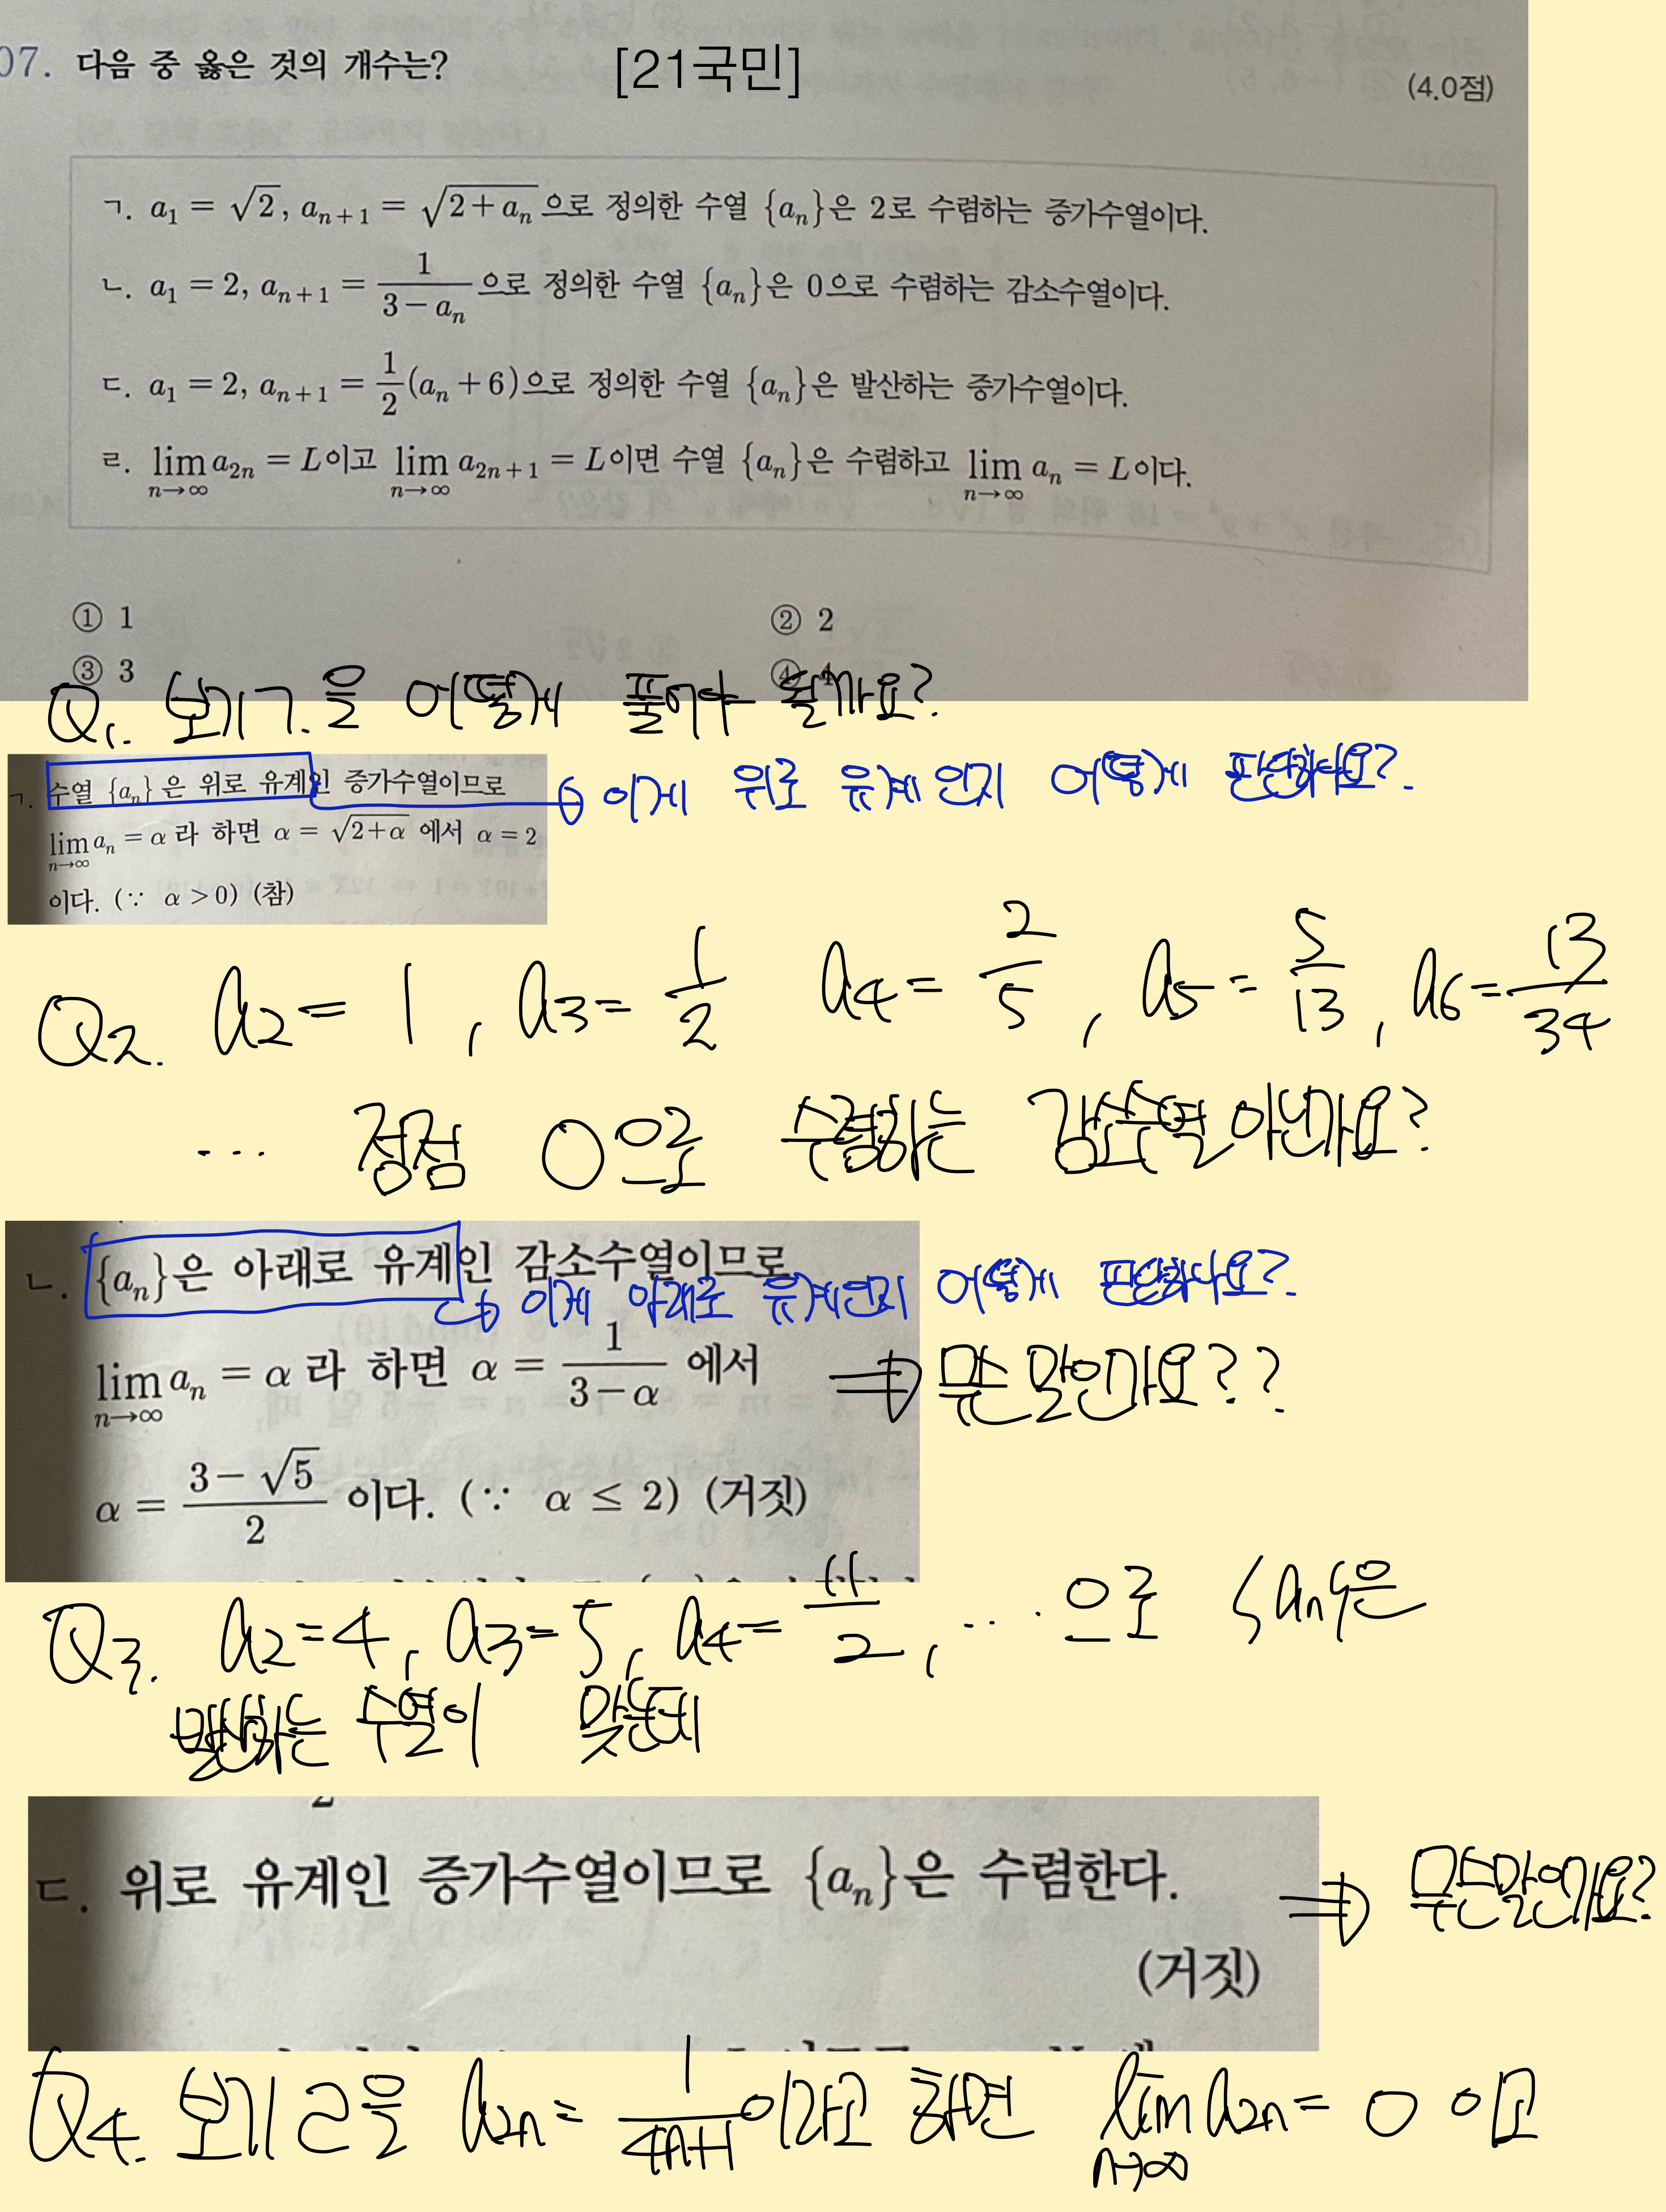 07. 다음 중 옳은 것의 개수는? [21국민] (4.0점)
ㄱ. a₁ = √2, aₙ₊₁ = √(2+aₙ)으로 정의한 수열 {aₙ}은 2로 수렴하는 증가수열이다.
ㄴ. a₁ = 2, aₙ₊₁ = 1/(3-aₙ)으로 정의한 수열 {aₙ}은 0으로 수렴하는 감소수열이다.
ㄷ. a₁ = 2, aₙ₊₁ = 1/2(aₙ+6)으로 정의한 수열 {aₙ}은 발산하는 증가수열이다.
ㄹ. lim n→∞ a₂ₙ = L이고 lim n→∞ a₂ₙ₊₁ = L이면 수열 {aₙ}은 수렴하고 lim n→∞ aₙ = L이다.
① 1 ② 2
③ 3 ④ 4
Q1. 보기ㄱ.을 어떻게 풀어야 될까요?
ㄱ. 수열 {aₙ}은 위로 유계인 증가수열이므로
이게 위로 유계인지 어떻게 판단하나요?
lim n→∞ aₙ = α라 하면 α = √(2+α) 에서 α = 2
이다. (∵ α > 0) (참)
Q2. a₂ = 1, a₃ = 1/2 a₄ = 2/5, a₅ = 5/13, a₆ = 13/34
... 점점 0으로 수렴하는 감소수열 아닌가요?
ㄴ. {aₙ}은 아래로 유계인 감소수열이므로
이게 아래로 유계인지 어떻게 판단하나요?
lim n→∞ aₙ = α라 하면 α = 1/(3-α) 에서 ⇒ 무슨 말인가요??
α = (3-√5)/2 이다. (∵ α ≤ 2) (거짓)
Q3. a₂=4, a₃=5, a₄=11/2, ... 으로 {aₙ}은
발산하는 수열이 맞는데
ㄷ. 위로 유계인 증가수열이므로 {aₙ}은 수렴한다. ⇒ 무슨말인가요?
(거짓)
Q4. 보기ㄹ을 a₂ₙ = 1/(4n+1)이라고 하면 lim n→∞ a₂ₙ = 0 이고